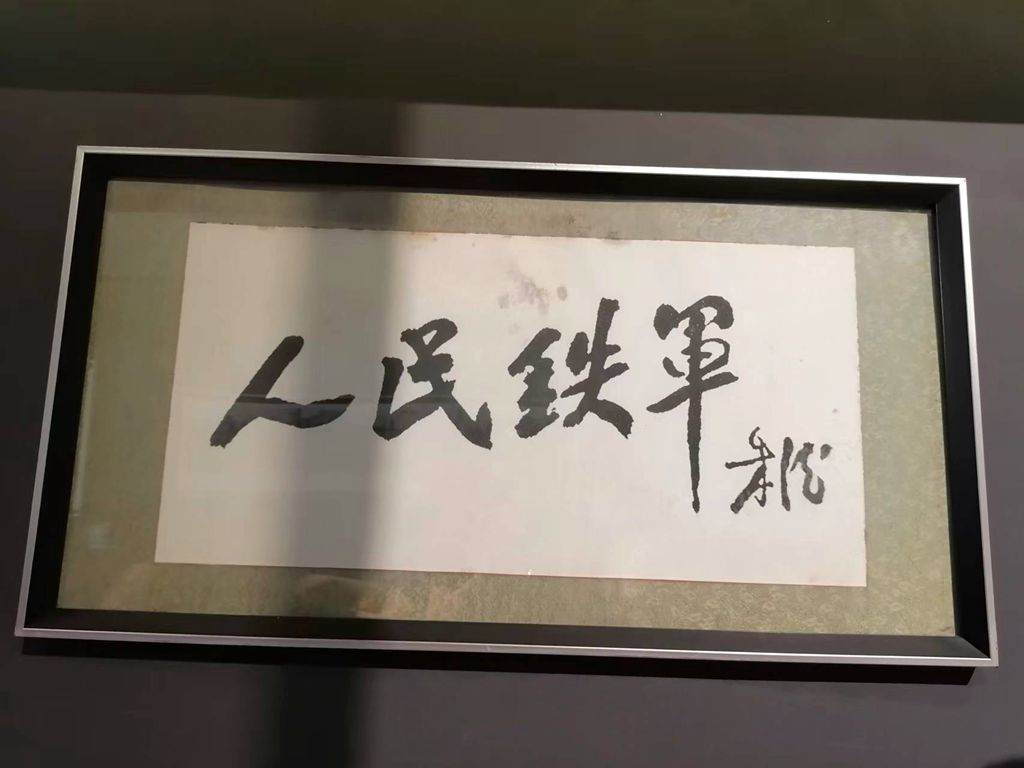 人民鉄軍
朱德